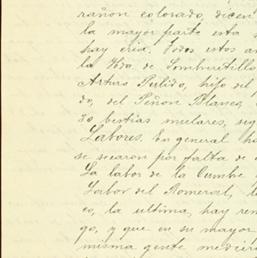 rañon colorado, dicen
la mayor parte esta
hay cria. Todos estos an
la Hda. de Sombreretillo
Arturo Pulido, hijo del
do, del Señor Blanco,
30 bestias mulares, seg
Labores. En general ha
se secaron por falta de a
La labor de la Cumbe
Labor del Romeral, l
co, la ultima, hay ren
go, y que en su mayor
misma gente